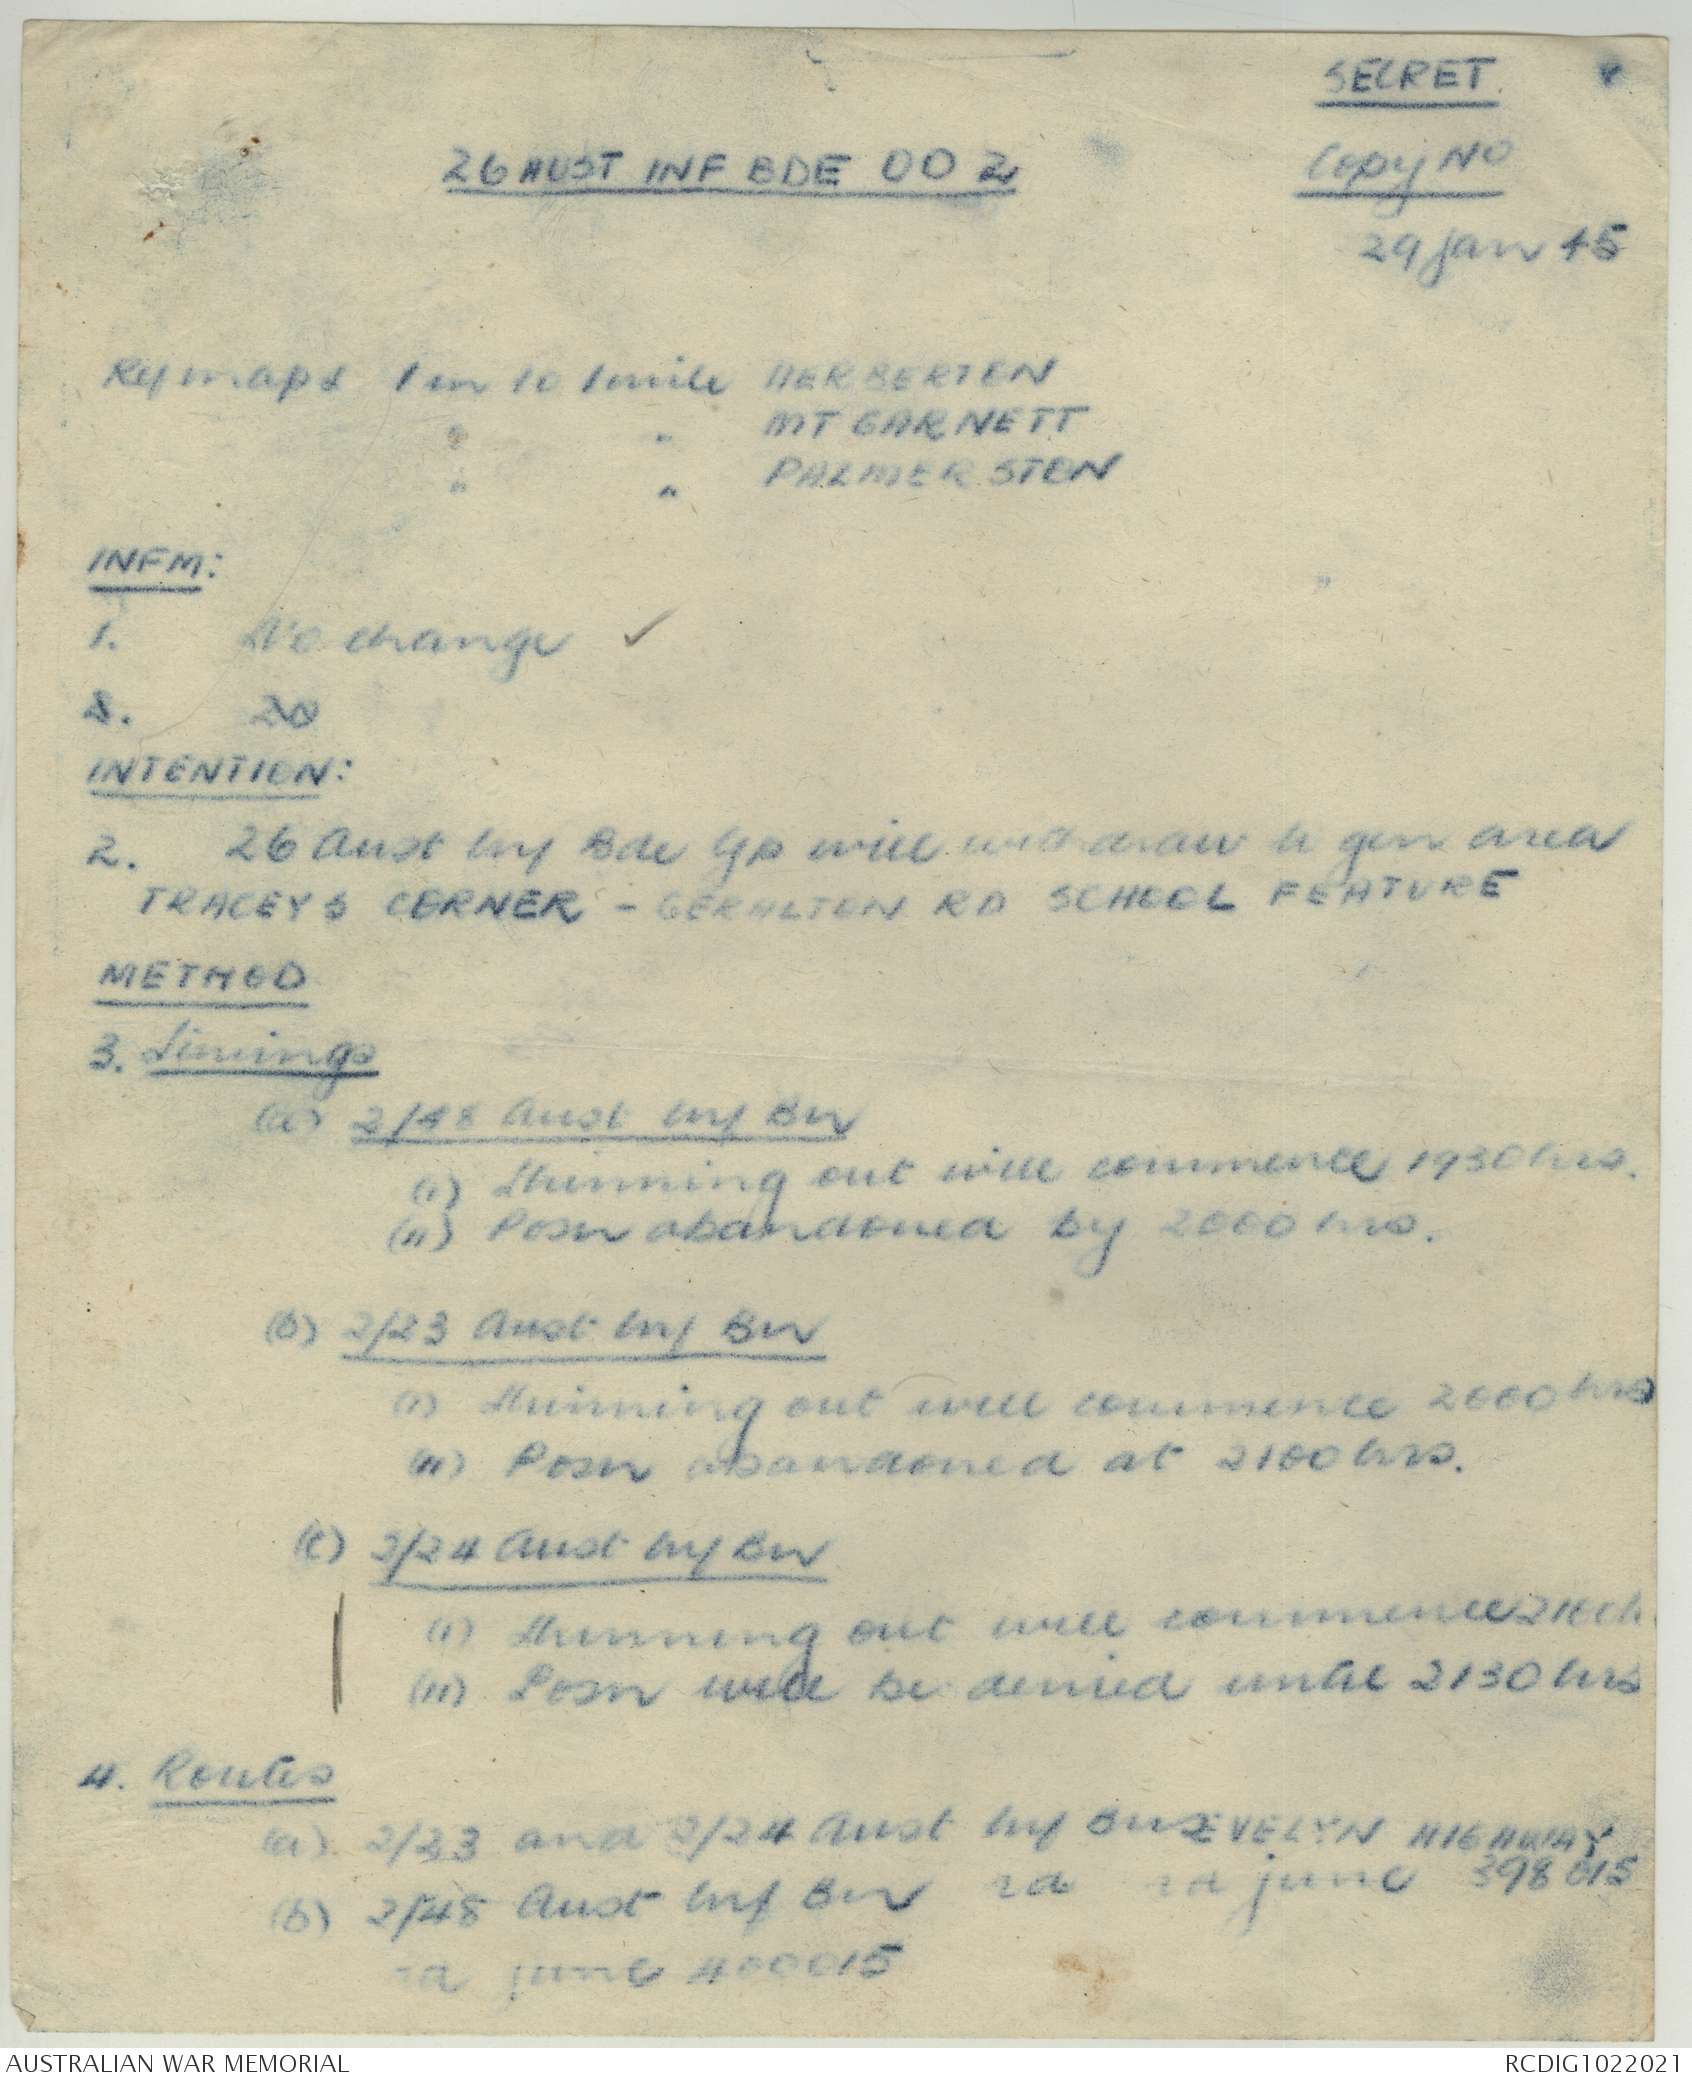 SECRET.
26 AUST INF BDE OO 2
Copy No
29 Jan 45
Ref maps 1 in to 1 mile HERBERTEN
" " MT GARNETT
" " PALMERSTON
INFM:
1. No change ✓
INTENTION:
2. 26 Aust Inf Bde Gp will withdraw to gen area
TRACEYS CORNER - GERALTON RD SCHOOL FEATURE
METHOD
3. Timings
(a) 2/48 Aust Inf Bn
(i) Thinning out will commence 1930 hrs.
(ii) Posn abandoned by 2000 hrs.
(b) 2/23 Aust Inf Bn
(i) Thinning out will commence 2000 hrs
(ii) Posn abandoned at 2100 hrs.
(c) 2/24 Aust Inf Bn
(i) Thinning out will commence
(ii) Posn will be denied until 2130 hrs
4. Routes
(a) 2/23 and 2/24 Aust Inf Bns EVELYN HIGHWAY
(b) 2/48 Aust Inf Bn rd rd junc 398015
rd junc 400015
AUSTRALIAN WAR MEMORIAL
RCDIG1022021